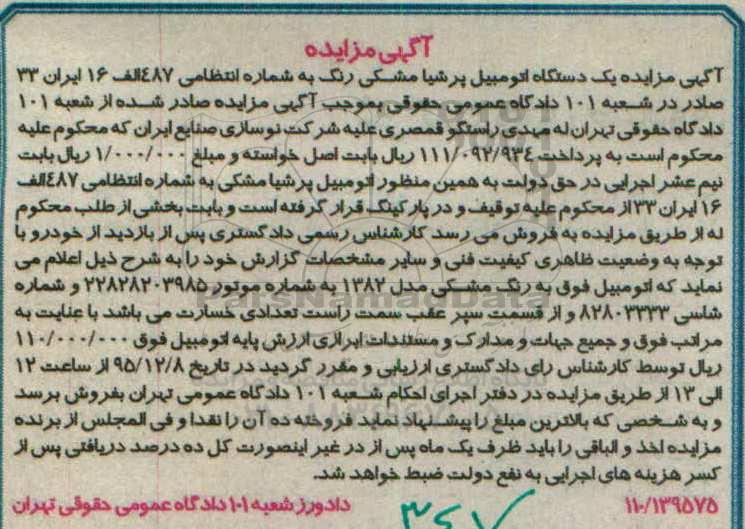 آگهی مزایده
آگهی مزایده یک دستگاه اتومبیل پرشیا مشکی رنگ به شماره انتظامی ٤٨٧الف ١٦ ایران ٣٣
صادر در شعبه ١٠١ دادگاه عمومی حقوقی بموجب آگهی مزایده صادر شده از شعبه ١٠١
دادگاه حقوقی تهران له مهدی راستگو قمصری علیه شرکت نوسازی صنایع ایران که محکوم علیه
محکوم است به پرداخت ١١١/٠٩٢/٩٣٤ ریال بابت اصل خواسته و مبلغ ١/٠٠٠/٠٠٠ ریال بابت
نیم عشر اجرایی در حق دولت به همین منظور اتومبیل پرشیا مشکی به شماره انتظامی ٤٨٧الف
١٦ ایران ٣٣ از محکوم علیه توقیف و در پارکینگ قرار گرفته است و بابت بخشی از طلب محکوم
له از طریق مزایده به فروش می رسد کارشناس رسمی دادگستری پس از بازدید از خودرو با
توجه به وضعیت ظاهری کیفیت فنی و سایر مشخصات گزارش خود را به شرح ذیل اعلام می
نماید که اتومبیل فوق به رنگ مشکی مدل ١٣٨٢ به شماره موتور ٢٢٨٢٨٢٠٣٩٨٥ و شماره
شاسی ٨٢٨٠٣٣٣٣ و از قسمت سپر عقب سمت راست تعدادی خسارت می باشد با عنایت به
مراتب فوق و جمیع جهات و مدارک و مستندات ابرازی ارزش پایه اتومبیل فوق ١١٠/٠٠٠/٠٠٠
ریال توسط کارشناس رای دادگستری ارزیابی و مقرر گردید در تاریخ ٩٥/١٢/٨ از ساعت ١٢
الی ١٣ از طریق مزایده در دفتر اجرای احکام شعبه ١٠١ دادگاه عمومی تهران بفروش برسد
و به شخصی که بالاترین مبلغ را پیشنهاد نماید فروخته ده آن را نقدا و فی المجلس از برنده
مزایده اخذ و الباقی را باید ظرف یک ماه پس از در غیر اینصورت کل ده درصد دریافتی پس از
کسر هزینه های اجرایی به نفع دولت ضبط خواهد شد.
١١٠/١٣٩٥٧٥ دادورز شعبه ١٠١ دادگاه عمومی حقوقی تهران
٣٤٧
ParsNamadData